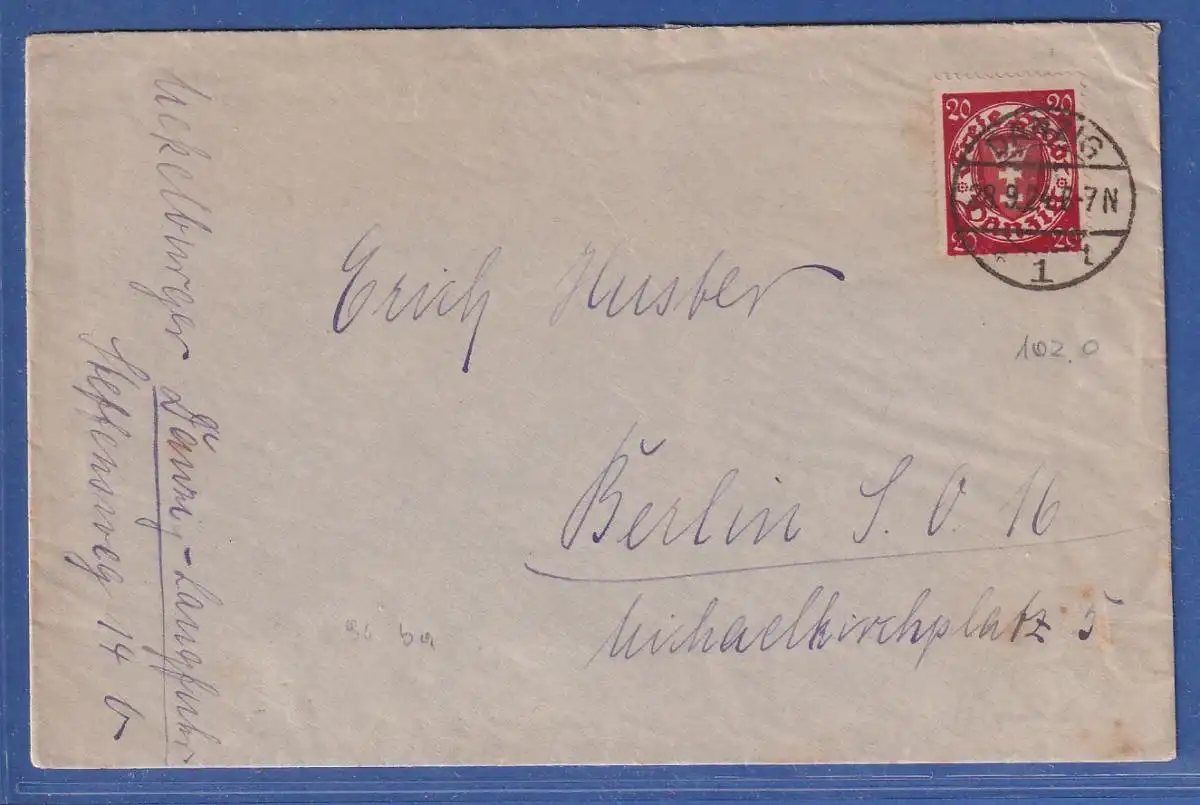 20 20
Freie Stadt
Danzig
20 20
DANZIG
28.9.24.6-7N
* 1 t
Erich Husber
Berlin S.O. 16
Michaelkirchplatz 5
102.0
Uekelburger
Danzig-Langfuhr
Steffensweg 14 b